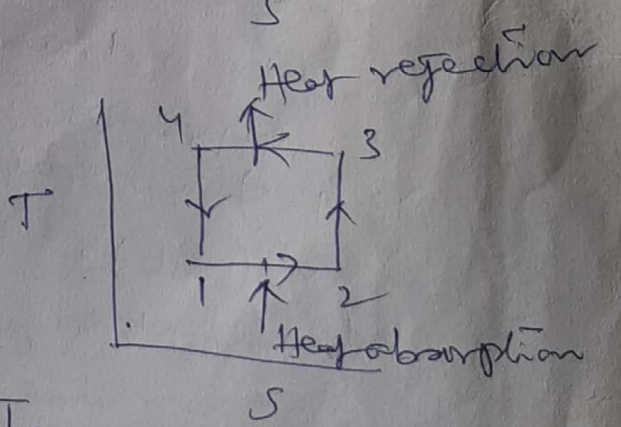 S
Heat rejection
4
3
T
1
2
Heat absorption
S
T